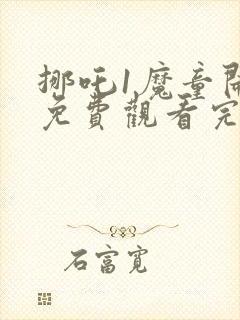 挪吒1魔童鬧
免費觀看完
石富寬